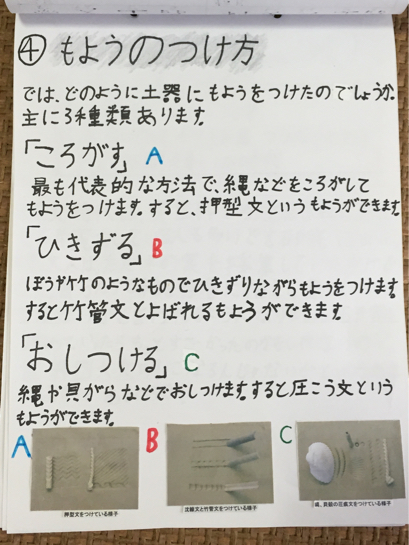 ④ もようのつけ方
では、どのように土器にもようをつけたのでしょうか。
主に3種類あります。
「ころがす」 A
最も代表的な方法で、縄などをころがして
もようをつけます。すると、押型文というもようができます。
「ひきずる」 B
ぼうや竹のようなものでひきずりながらもようをつけます。
すると竹管文とよばれるもようができます。
「おしつける」 C
縄や貝がらなどでおしつけます。すると圧こう文という
もようができます。
A B C
押型文をつけている様子
沈線文と竹管文をつけている様子
縄、貝殻の圧痕文をつけている様子